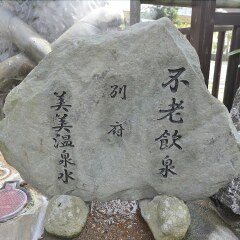 不老飲泉
別府
美美温泉水